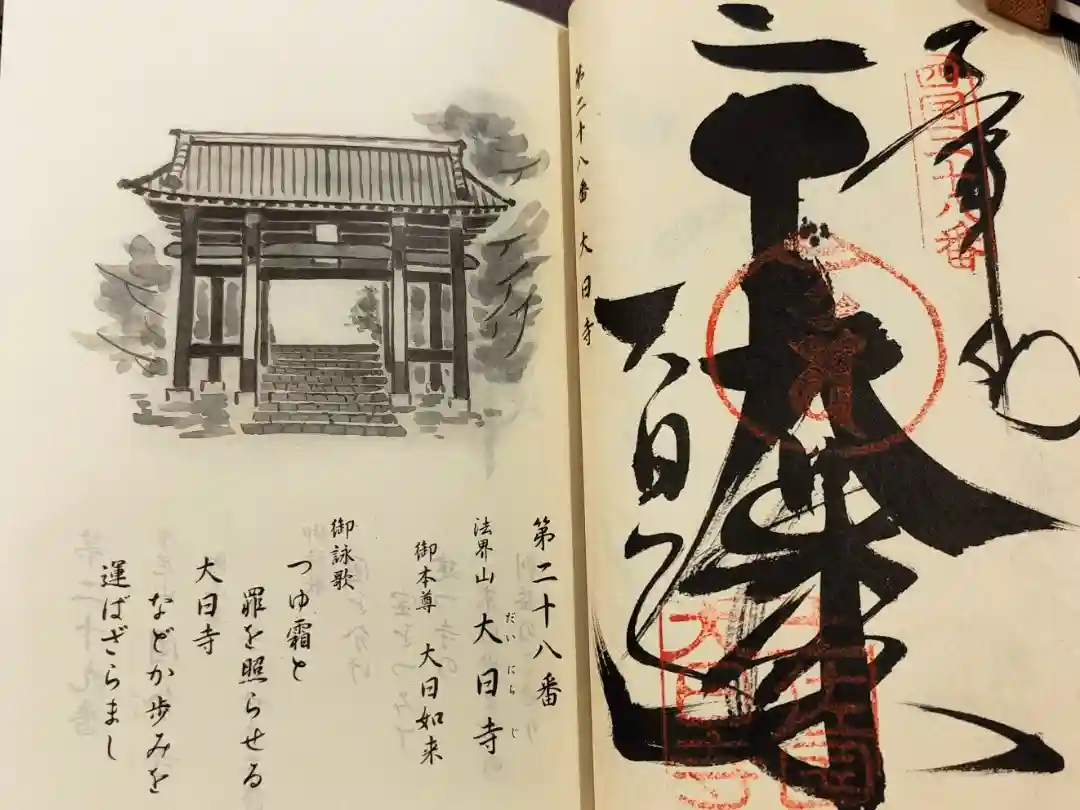 奉納
四国二十八番
大日寺
大日寺
第二十八番 大日寺
第二十八番
法界山 大日寺
だいにちじ
御本尊 大日如来
御詠歌
つゆ霜と
罪を照らせる
大日寺
などか歩みを
運ばざらまし